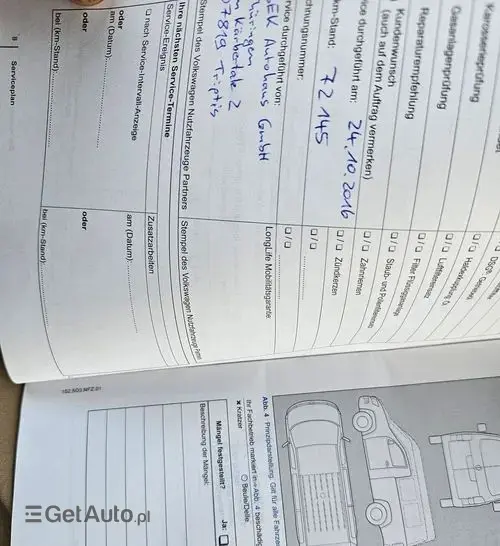 Karosserieprüfung
Gasanlagenprüfung
Reparaturempfehlung
Kundenwunsch
(auch auf dem Auftrag vermerken)
durchgeführt am: 24.10.2016
km-Stand: 72145
durchgeführt von:
Autohaus GmbH
Thüringen
2
Triptis
Stempel des Volkswagen Nutzfahrzeuge Partners
Ihre nächsten Service-Termine
Service-Ereignis
nach Service-Intervall-Anzeige
oder
am (Datum):
oder
bei (km-Stand):
8 Serviceplan
Luftfiltereinsatz
Staub- und Pollenfiltereinsatz
Zahnriemen
Zündkerzen
LongLife Mobilitätsgarantie
Stempel des Volkswagen Nutzfahrzeuge
Zusatzarbeiten
am (Datum):
oder
bei (km-Stand):
152.5D3.NFZ.01
Abb. 4 Prinzipdarstellung. Gilt für alle
Ihr Fachbetrieb markiert in ⇒ Abb. 4
× Kratzer
Beule/Delle
Mängel festgestellt? Ja:
Beschreibung der Mängel:
GetAuto.pl